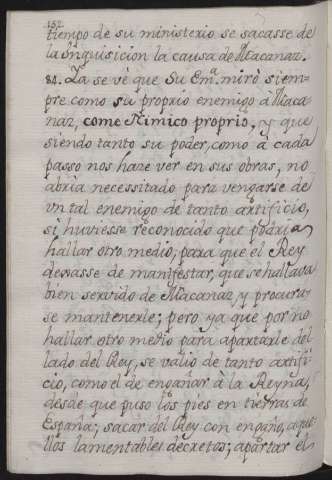 152
tiempo de su ministerio se sacasse de
la Inquisicion la causa de Macanaz.
84. Ya se vè que Su Emª. mirò siem-
pre como su proprio enemigo à Maca
naz, come Nimico proprio, y que
siendo tanto su poder, como à cada
passo nos haze ver en sus obras, no
abria necessitado para vengarse de
vn tal enemigo de tanto artificio,
si huviesse reconocido que podria
hallar otro medio, para que el Rey
dexasse de manifestar, que se hallava
bien servido de Macanaz, y procura-
se mantenerle; pero ya que por no
hallar otro medio para apartarle del
lado del Rey, se valio de tanto artifi-
cio, como el de engañar à la Reyna,
desde que puso los pies en tierras de
España; sacar del Rey con engaño, aque-
llos lamentables decretos; apartar el